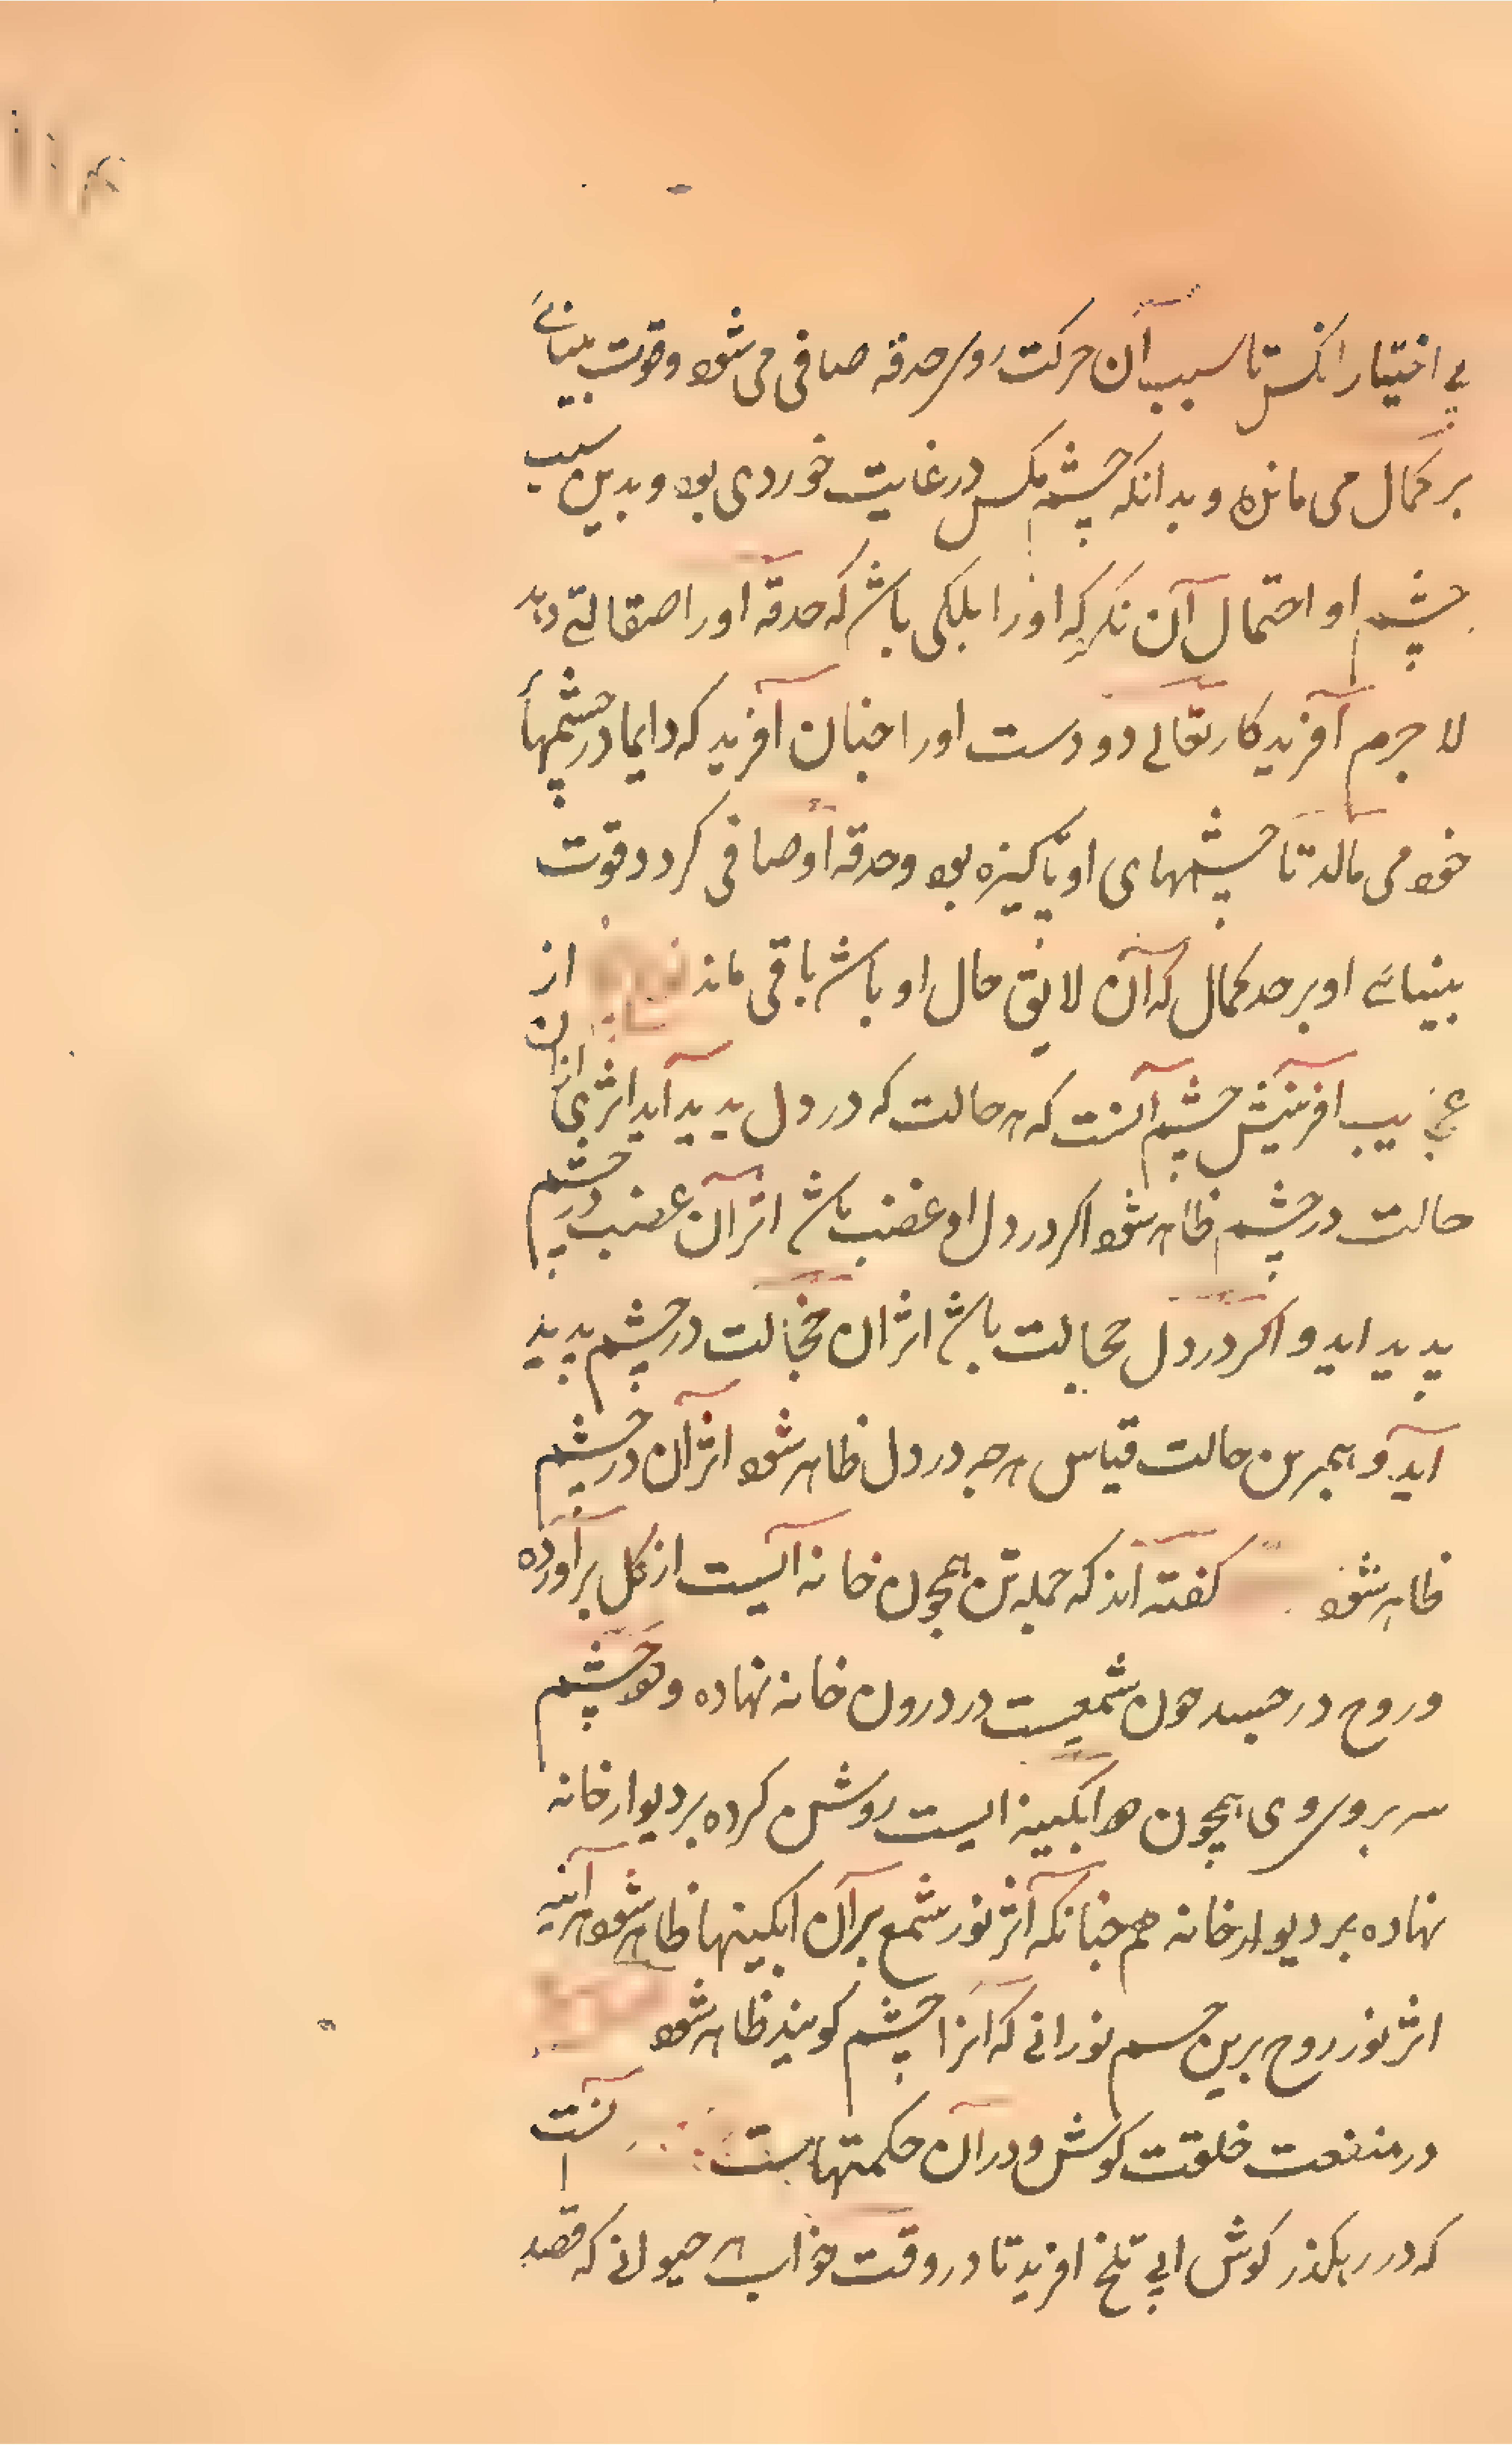 بی اختیار انکس تا سبب آن حرکت روی حدقه صافی می شود وقوت بینائی
بر کمال می ماند و بدانکه چشم مکس در غایت خوردی بود و بدین سبب
چشم او احتمال آن نکرد که او را بلکی باشد که حدقه او را صقالتی دهد
لا جرم آفریدکار تعالی دو دست او را جنان آفرید که دایما در چشمها
خود می مالد تا چشمهای او پاکیزه بود وحدقه او صافی کردد وقوت
بینائی او بر حد کمال که آن لایق حال او باشد باقی ماند از
عجایب افرینش چشم آنست که هر حالت که در دل پدید آید اثر آن
حالت در چشم ظاهر شود اکر در دل او غضب باشد اثر آن غضب در چشم
پدید اید و اکر در دل خجالت باشد اثر ان خجالت در چشم پدید
آید و همبرین حالت قیاس هر جه در دل ظاهر شود اثر آن در چشم
ظاهر شود کفته اند که جمله تن همچون خانه ایست از کل برآورده
و روح در جسد جون شمعیست در درون خانه نهاده و دو چشم
بر روی همچون دو ابکینه ایست روشن کرده بر دیوار خانه
نهاده بر دیوار خانه هم جنانکه اثر نور شمع برآن ابکینها ظاهر شود هر آینه
اثر نور روح برین جسم نورانی که آنرا چشم کویند ظاهر شود
در منفعت خلقت کوش ودر آن حکمتهاست آنست
که در رهکذر کوش ابی تلخ افرید تا در وقت خواب هر حیوانی که قصد